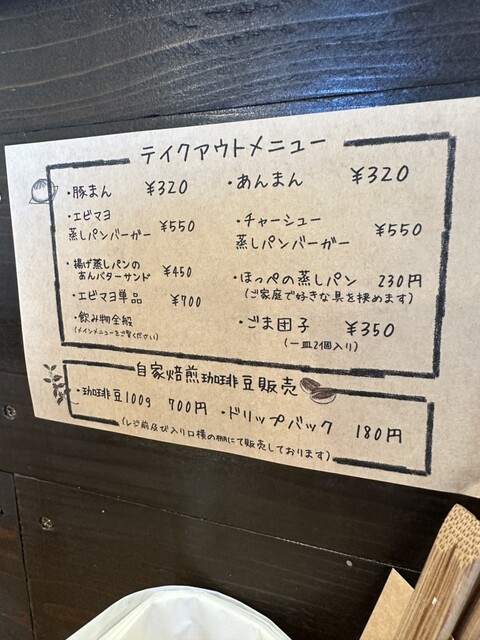 テイクアウトメニュー
・豚まん ¥320
・あんまん ¥320
・エビマヨ
蒸しパンバーガー ¥550
・チャーシュー
蒸しパンバーガー ¥550
・揚げ蒸しパンの
あんバターサンド ¥450
・ほっぺの蒸しパン 230円
(ご家庭で好きな具を挟めます)
・エビマヨ単品 ¥700
・飲み物全般
(メインメニューをご覧ください)
・ごま団子 ¥350
(一皿2個入り)
自家焙煎珈琲豆販売
・珈琲豆100g 700円
・ドリップバック 180円
(レジ前及び入り口横の棚にて販売しております)